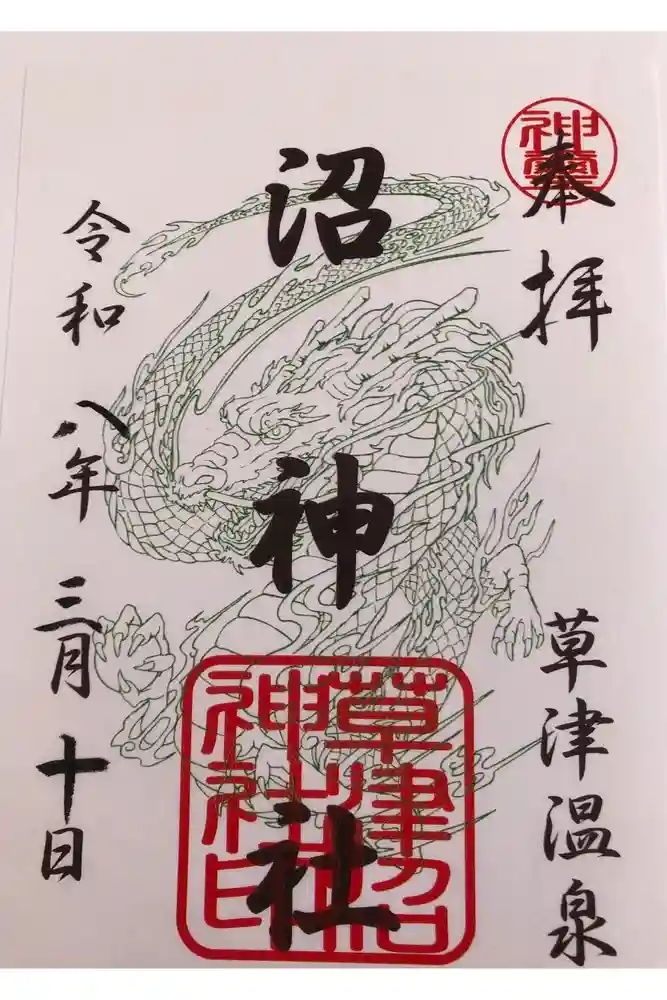 神霊
奉拝
草津温泉
沼神社
草津沼
神社印
令和八年三月十日